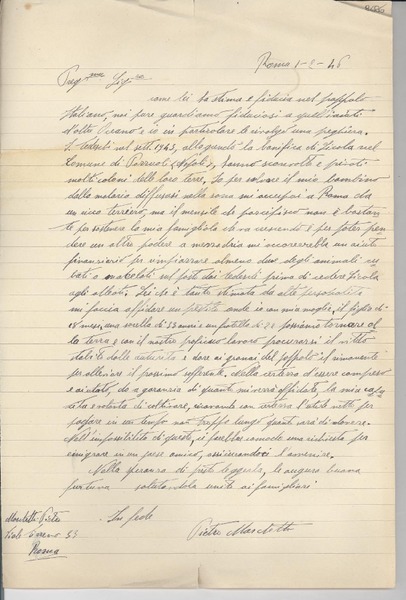 Roma 1-2-46
come lei ha stima e fiducia nel popolo
italiano, noi pure guardiamo fiduciosi a
d'oltre Oceano e io in particolare le rivolgo una preghiera.
I tedeschi nel sett. 1943, allagando la bonifica di Licola nel
Comune di Pozzuoli (Napoli), hanno e privati
molti coloni delle loro terre. Io per salvare il mio bambino
dalla malaria diffusasi nella zona mi occupai a Roma da
un ricco terriero, ma il mensile che percepisco non è bastan
te per sostenere la mia famiglia che va crescendo e per poter pren
dere un altro podere a mezzadria mi occorrerebbe un aiuto
finanziario per rimpiazzare almeno due degli animali ru
bati o macellati sul posto dai tedeschi prima di cedere Licola
agli alleati. Lei che è tanto stimata da alte personalità
mi faccia affidare un prestito onde io con mia moglie, il figlio di
15 mesi, una sorella di 33 anni e un fratello di 28 possiamo tornare al
la terra e con il nostro proficuo lavoro procurarci il vitto
e dare ai granai del popolo il rimanente
per alleviare il prossimo sofferente. Nella certezza d'essere compreso
e aiutato, do a garanzia di quanto mi verrà affidato, la mia capa
cità e volontà di coltivare, ricavando con certezza l'utile netto per
pagare in un tempo non troppo lungo quanto sarà di dovere.
Nell'impossibilità di questo, mi farebbe comodo una richiesta per
emigrare in un paese amico, assicurandoci l'avvenire.
Nella speranza di presto leggerla, le auguro buona
fortuna salutandola uniti ai famigliari
In fede
Pietro
Roma